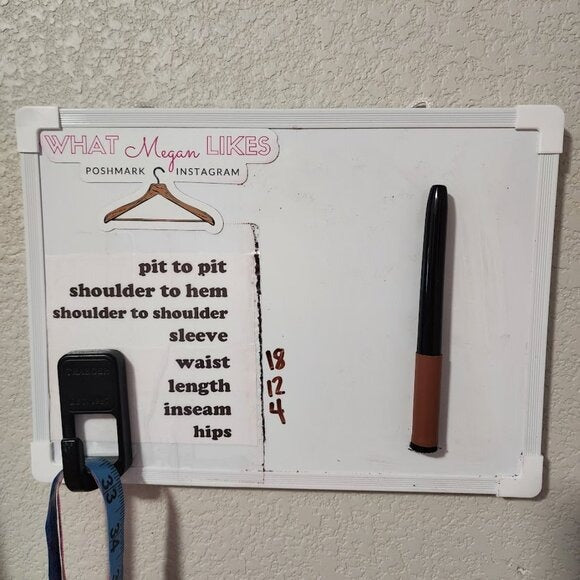 WHAT Megan LIKES
POSHMARK INSTAGRAM
pit to pit
shoulder to hem
shoulder to shoulder
sleeve
waist 18
length 12
inseam 4
hips
TRAEGER
33
34